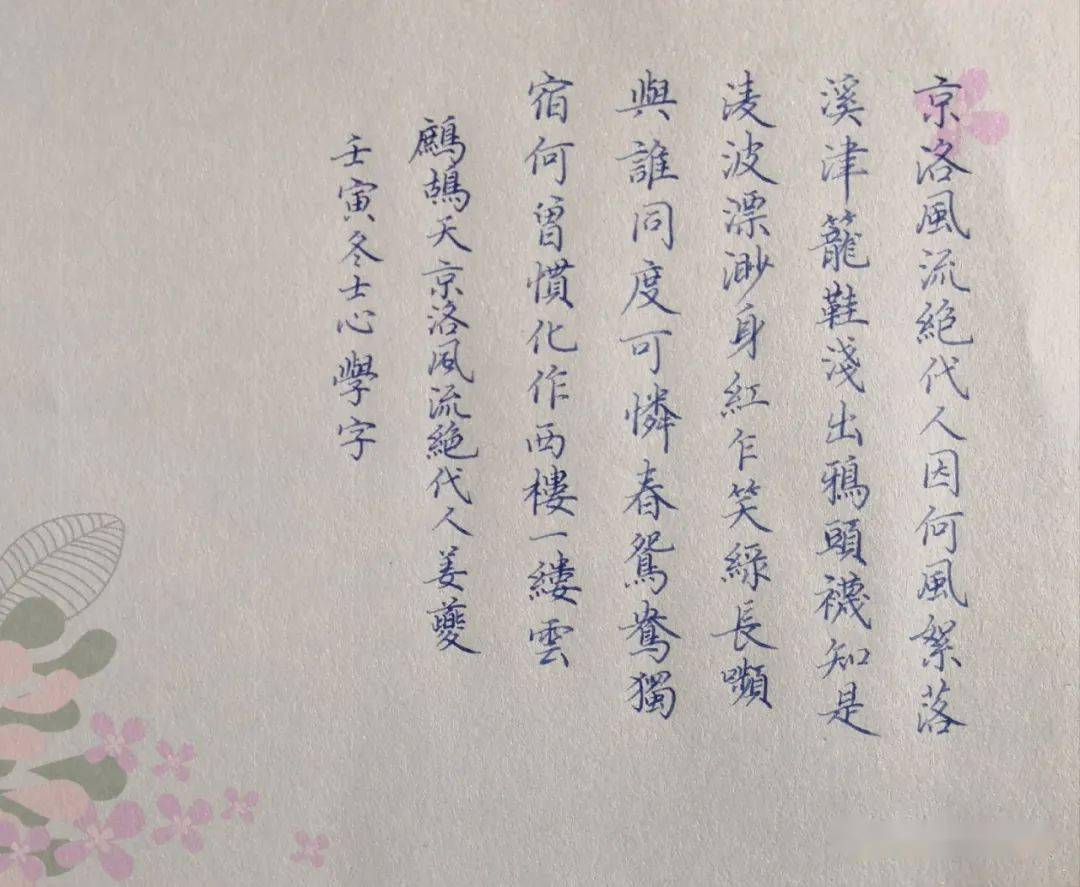 京洛風流絕代人因何風絮落
溪津籠鞋淺出鴉頭襪知是
淩波漂渺身紅乍笑綠長嚬
與誰同度可憐春鴛鴦獨
宿何曾慣化作西樓一縷雲
鷓鴣天京洛風流絕代人姜夔
壬寅冬士心學字